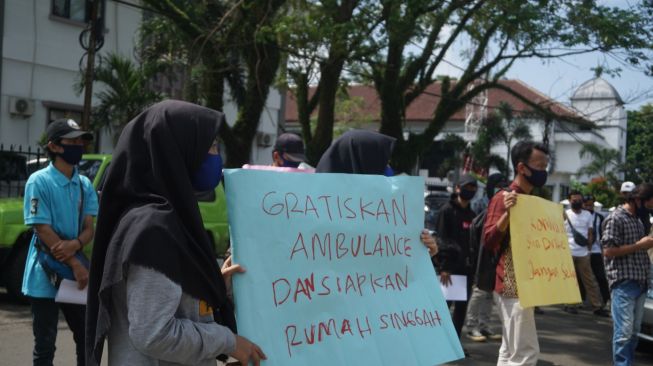 GRATISKAN
AMBULANCE
DAN SIAPKAN
RUMAH SINGGAH
Jangan